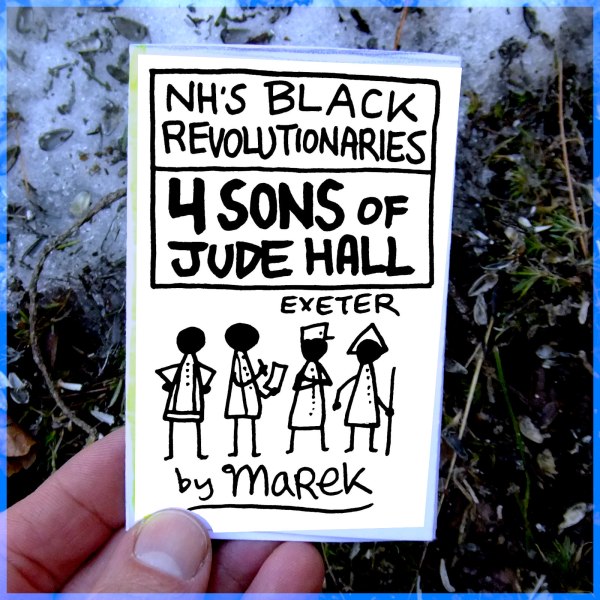 NH'S BLACK
REVOLUTIONARIES
4 SONS OF
JUDE HALL
EXETER
by MaReK